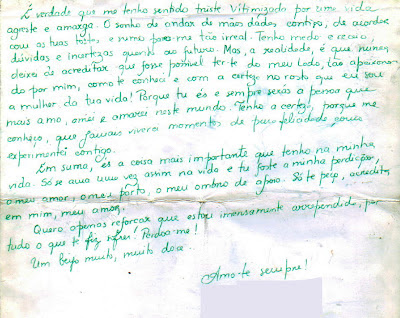 É verdade que me tenho sentido triste. Vitimizado por uma vida
agreste e amarga. O sonho de andar de mãos dadas contigo, de acordar
com as tuas fotos, e rumo para me tão irreal. Tenho medo e receio,
dúvidas e incertezas quanto ao futuro. Mas, a realidade, é que nunca
deixei de acreditar que fosse possível ter-te do meu lado, tão apaixona-
do por mim, como te conheci e com a certeza no rosto que eu sou
a mulher da tua vida! Porque tu és e sempre serás a pessoa que
mais amo, amei e amarei neste mundo. Tenho a certeza, porque me
conheço, que jamais viverei momentos de pura felicidade como
experimentei contigo.
Em suma, és a coisa mais importante que tenho na minha
vida. Só se ama uma vez assim na vida e tu foste a minha perdição,
o meu amor, o meu porto, o meu ombro de apoio. Só te peço, acredita
em mim, meu amor.
Quero apenas reforçar que estou imensamente arrependido, por
tudo o que te fiz sofrer! Perdoa-me!
Um beijo muito, muito doce...
Amo-te sempre!